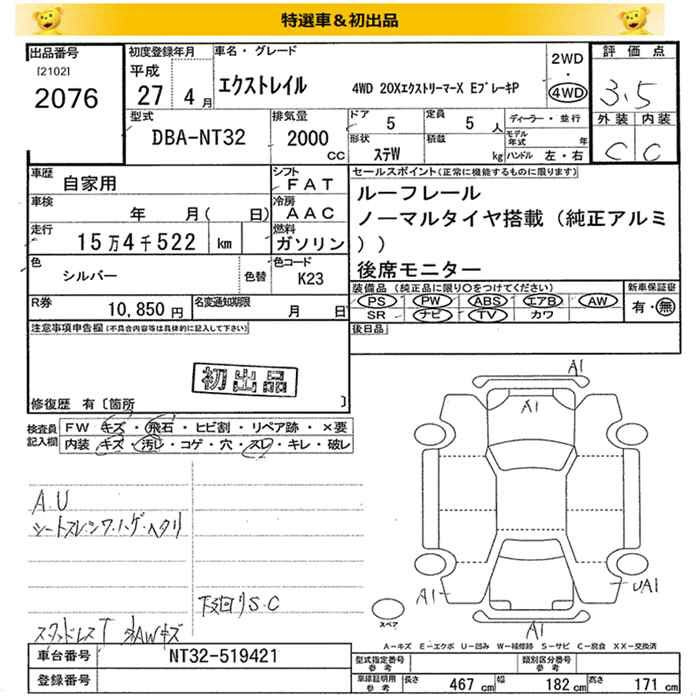 特選車＆初出品
出品番号
[2102]
2076
初度登録年月
平成
27 4月
車名・グレード
エクストレイル 4WD 20Xエクストリーマー X EブレーキP
2WD
・
4WD
評価点
3.5
外装 内装
C C
型式
DBA-NT32
排気量
2000
CC
ドア 5
定員 5 人
形状 ステW
積載 kg
ディーラー・並行
モデル年式 年
ハンドル 左・右
車歴 自家用
シフト FAT
車検 年 月( 日)
冷房 AAC
走行 15万4千522 km
燃料 ガソリン
色 シルバー 色替
色コード K23
R券 10,850円
名変通知期限 月 日
セールスポイント(正常に機能するものに限ります)
ルーフレール
ノーマルタイヤ搭載（純正アルミ
））
後席モニター
装備品(純正品に限り○をつけてください)
PS PW ABS エアB AW
SR ナビ TV カワ
新車保証書
有・無
後日品
注意事項申告欄(不具合内容等は具体的に記入して下さい)
初出品
修復歴 有〔箇所 〕
検査員記入欄
FW キズ・飛石・ヒビ割・リペア跡・×要
内装 キズ・汚レ・コゲ・穴・スレ・キレ・破レ
A.U
シートスレ・シワ・ハゲ・ヘタリ
下廻りS.C
スタッドレスT AWキズ
A1
A1
A1
UA1
A1
スペア
A－キズ E－エクボ U－凹み W－補修跡 S－サビ C－腐食 XX－交換済
車台番号 NT32-519421
登録番号
型式指定番号 参考
類別区分番号 参考
車庫証明用 参考
長さ 467 cm
幅 182 cm
高さ 171 cm